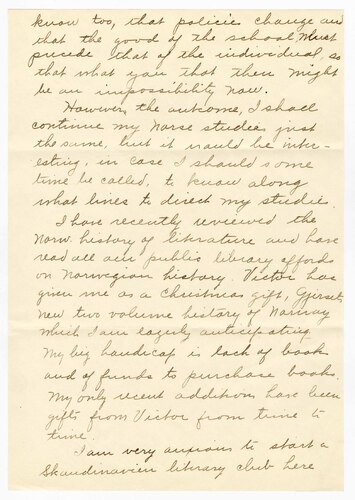 know too, that policies change and
that the good of the school must
precede that of the individual, so
that what you that then might
be an impossibility now.
However the outcome, I shall
continue my Norse studies just
the same, but it would be inter-
esting, in case I should some
time be called, to know along
what lines to direct my studies.
I have recently reviewed the
Norw. history of literature and have
read all our public library affords
on Norwegian history. Victor has
given me as a Christmas gift, Gjerset's
new two volume history of Norway
which I am eagerly anticipating
My big handicap is lack of books
and of funds to purchase books.
My only recent additions have been
gifts from Victor from time to
time.
I am very anxious to start a
Skandinavien literary club here